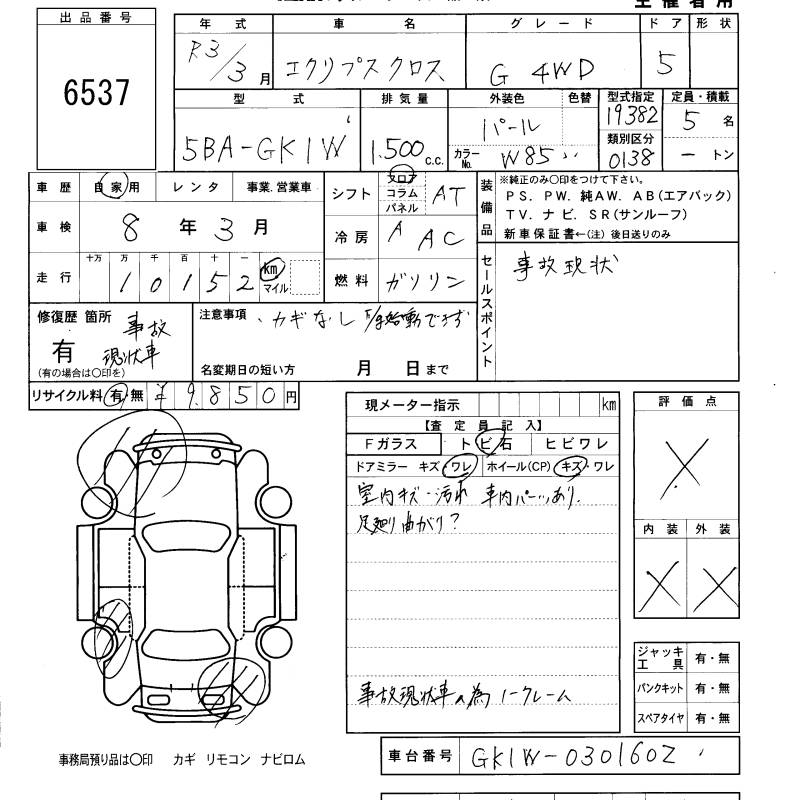 主催者用
出品番号
6537
年式 車名 グレード ドア 形状
R3/3月 エクリプスクロス G 4WD 5
型式 排気量 外装色 色替 型式指定 定員・積載
5BA-GK1W 1.500c.c. パール 19382 5名
カラーNo. W85 類別区分 0138 ートン
車歴 自家用 レンタ 事業.営業車 シフト フロア コラム パネル AT
車検 8年3月 冷房 A AC
走行 十万 万 千 百 十 一 10152 km マイル 燃料 ガソリン
装備品 ※純正のみ○印をつけて下さい。
PS. PW. 純AW. AB(エアバック)
TV. ナビ. SR(サンルーフ)
新車保証書←(注)後日送りのみ
セールスポイント 事故現状
修復歴 箇所 事故
有 現状車
(有の場合は○印を)
注意事項 ・カギなし 始動できず
名変期日の短い方 月 日まで
リサイクル料 有・無 ¥9850円
現メーター指示 km
【査定員記入】
Fガラス トビ石 ヒビワレ
ドアミラー キズ・ワレ ホイール(CP) キズ・ワレ
室内キズ・汚れ 車内パーツあり.
足廻り曲がり?
事故現状車の為ノークレーム
評価点
X
内装 外装
X X
ジャッキ工具 有・無
パンクキット 有・無
スペアタイヤ 有・無
事務局預り品は○印 カギ リモコン ナビロム
車台番号 GK1W-0301602